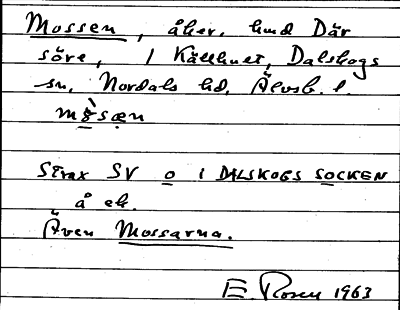 Mossen, åker, hmd Där
söre, i Källhuet, Dalskogs
sn, Nordals hd, Älvsb. l.
Strax SV o i DALSKOGS SOCKEN
å ek.
Även Mossarna.
E. Rosen 1963